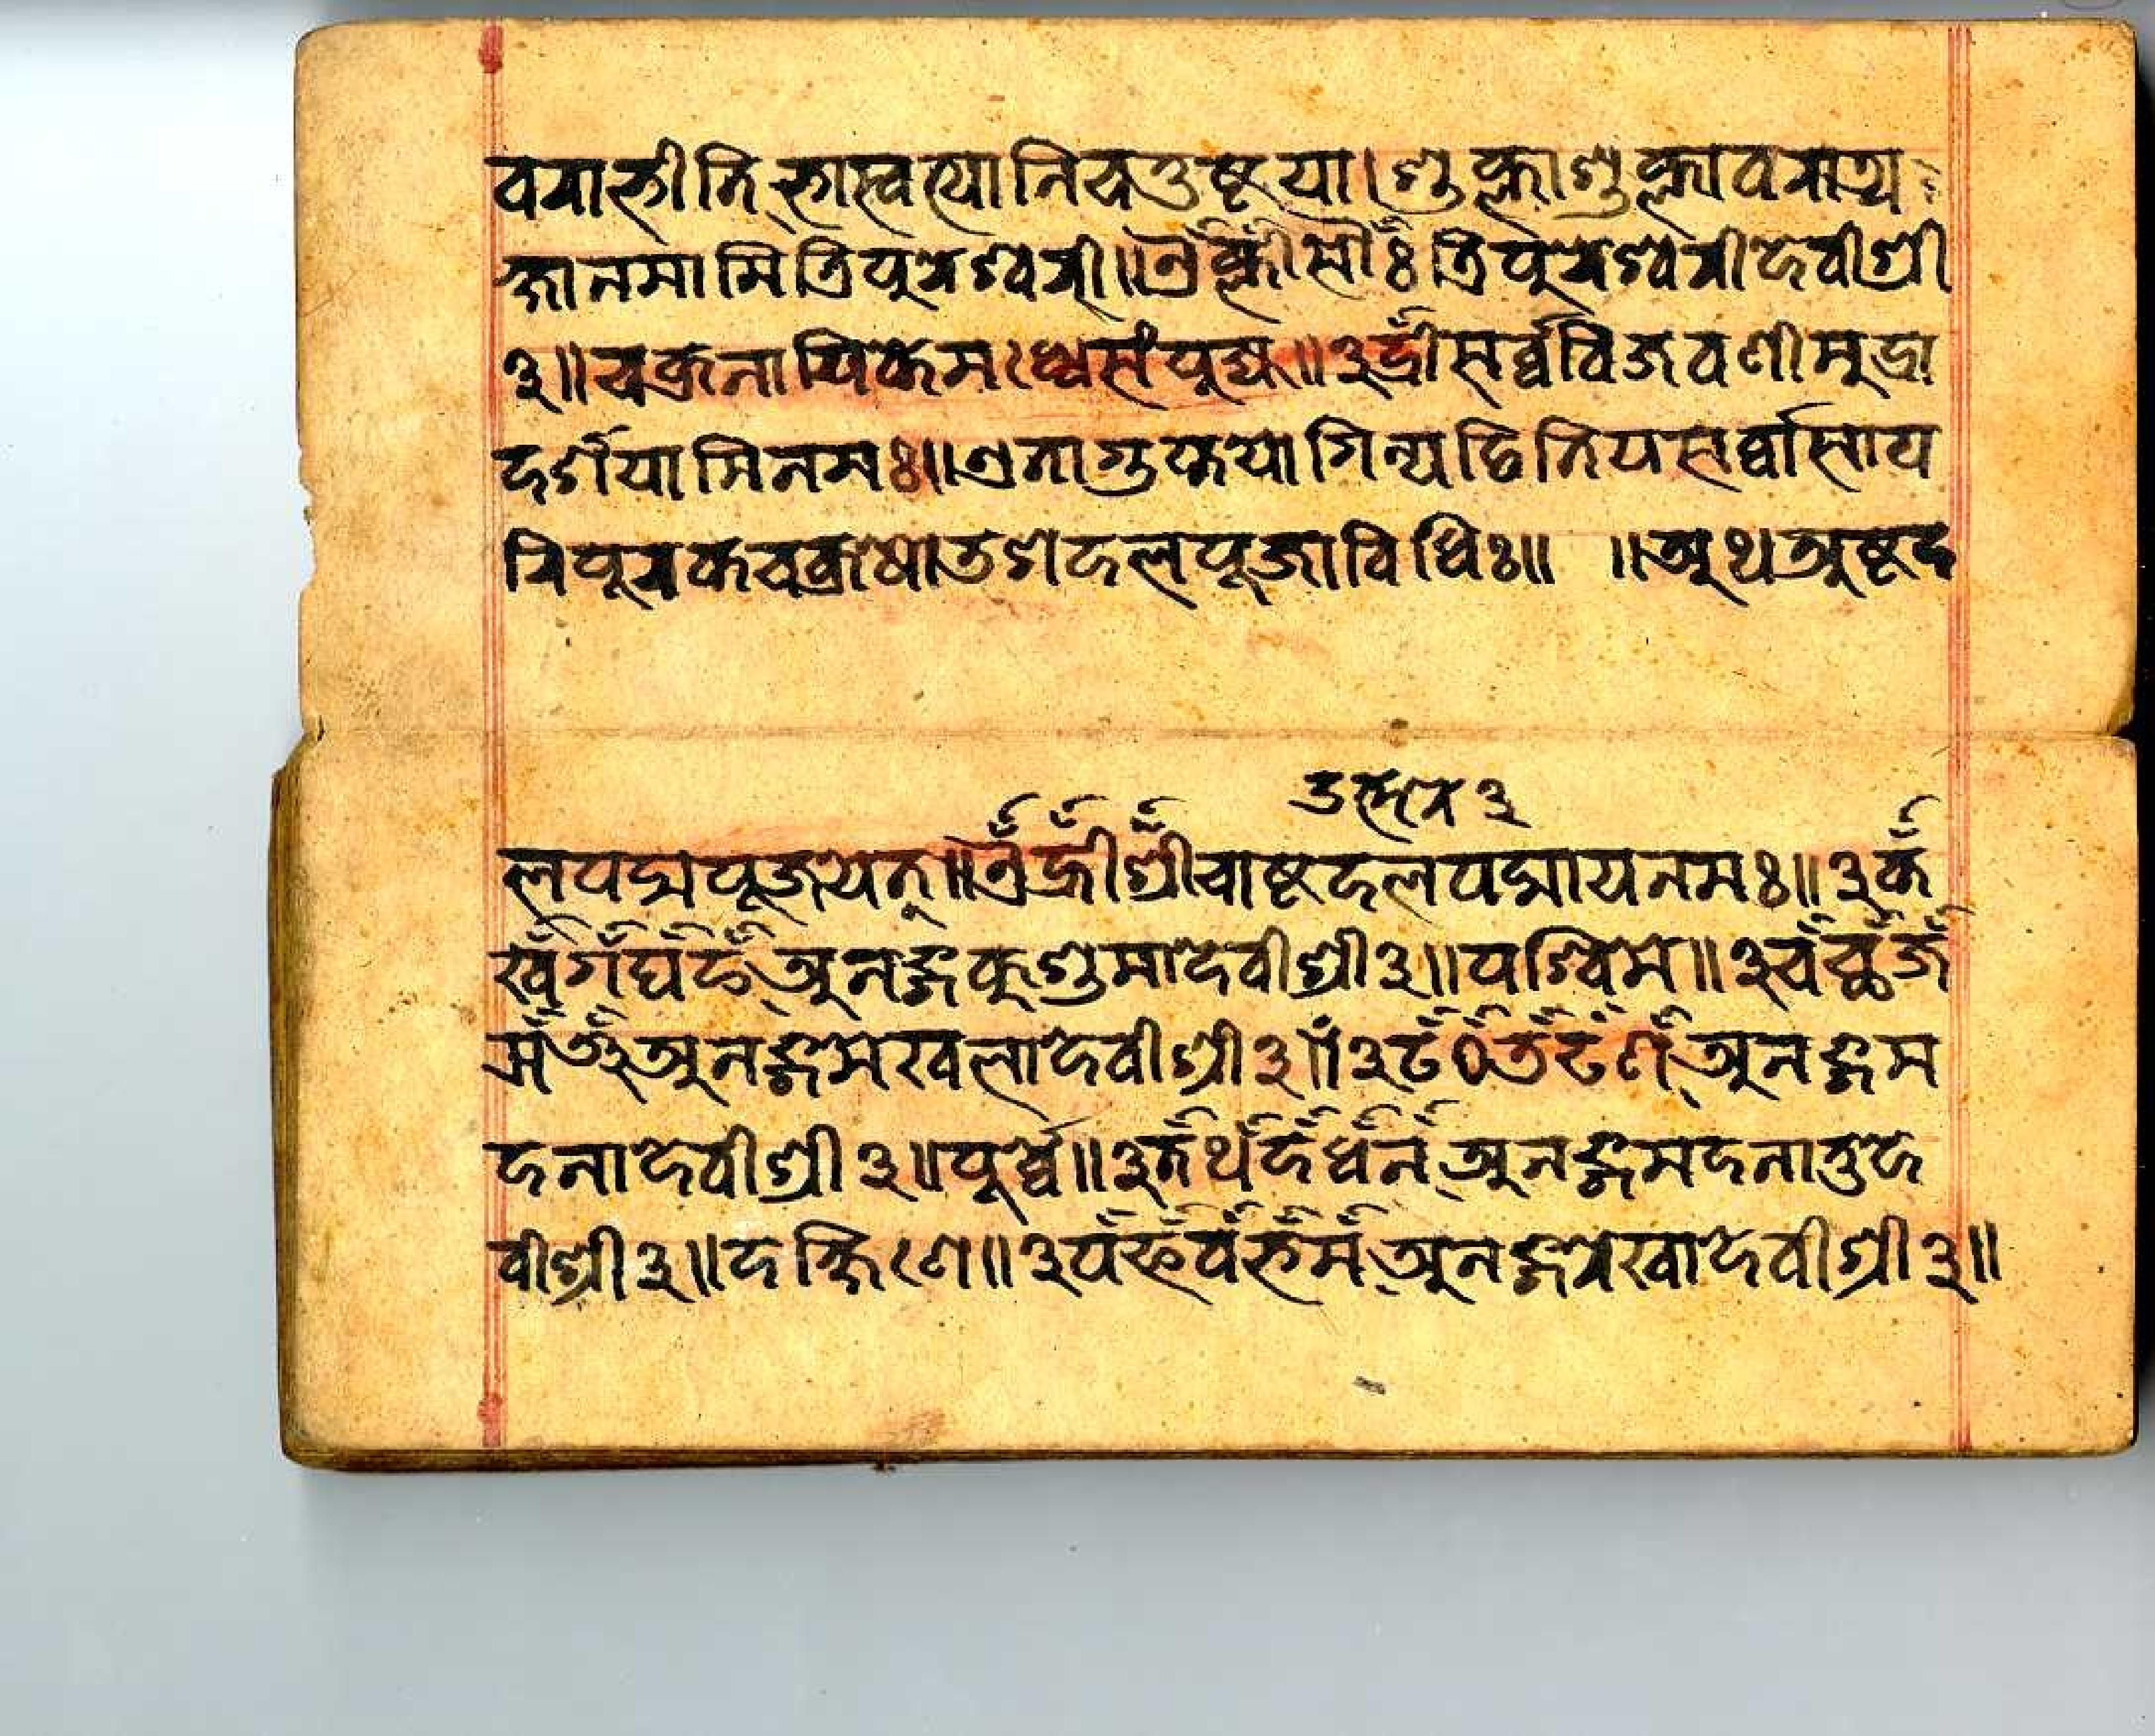 वराभीति भास्वत्यानि चतुष्टया। शुक्लाशुक्लावरासत्य
क्षा नमामि त्रिपुरेश्वरी॥ ऐँ क्लीँ सौँः त्रिपुरेश्वरीदेवीश्री
३॥ चक्रनायिके मध्ये संपूज्य॥ ३ द्रीँ सर्व्वविजवणीमुद्रा
दर्शयामि नमः॥ एता गुप्तयोगिन्य द्वितिय सर्व्वासाय
रिपूरकचक्रे षोडशदलपूजाविधिः॥ ॥ अथ अष्टद
उत्तरे ३
लपद्म पूजयेत्॥ ऐँ ह्रीँ श्रीँ चाष्टदलपद्माय नमः॥ ३ कँ
खँ गँ घँ ङँ अनङ्गकुशुमादेवीश्री ३॥ पश्चिमे॥ ३ चँ छँ जँ
झँ ञँ अनङ्गमेखलादेवीश्री ३॥ ३ टँ ठँ डँ ढँ णँ अनङ्गम
दनादेवीश्री ३॥ पूर्व्वे॥ ३ तँ थँ दँ धँ नँ अनङ्गमदनातुदे
वीश्री ३॥ दक्षिणे॥ ३ पँ फँ बँ भँ मँ अनङ्गरेखादेवीश्री ३॥